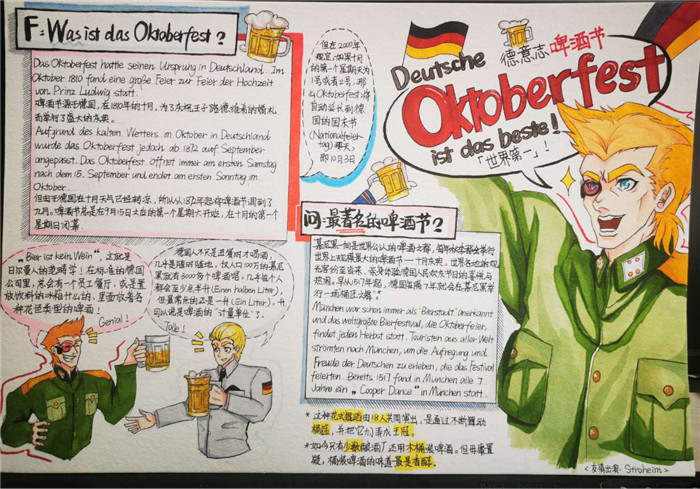 F: Was ist das Oktoberfest?
Das Oktoberfest hatte seinen Ursprung in Deutschland. Im
Oktober 1810 fand eine große Feier zur Feier der Hochzeit
von Prinz Ludwig statt.
啤酒节源于德国，在1810年的十月，为了庆祝王子路德维希的婚礼
而举行了盛大的庆典。
Aufgrund des kalten Wetters im Oktober in Deutschland
wurde das Oktoberfest jedoch ab 1872 auf September
angepasst. Das Oktoberfest öffnet immer am ersten Samstag
nach dem 15. September und endet am ersten Sonntag im
Oktober.
但由于德国在十月天气已经转凉，所以从1872年起将啤酒节调到了
九月。啤酒节总是在9月15日之后的第一个星期六开始，在十月的第一个
星期日闭幕
但在2000年
规定：如果十月
的第一个星期天为
1号或者2号，那
么Oktoberfest将
自动延长到德
国的国庆节
(Nationalfeier-
tag)那天，
即10月3日
德意志啤酒节
Deutsche
Oktoberfest
ist das beste!
「世界第一」！
问：最著名的啤酒节？
慕尼黑一向是世界公认的啤酒之都，
世界上规模最大的啤酒节——十月庆典，世界各地的观
光客纷至沓来，亲身体验德国人民欢庆节日的喜悦与
热闹。早从1517起，德国每隔7年就会在慕尼黑举
行一场桶匠之舞"
München war schon immer als "Bierstadt" anerkannt
und das weltgrößte Bierfestival, die Oktoberfeier,
findet jeden Herbst statt. Touristen aus aller Welt
strömten nach München, um die Aufregung und
Freude der Deutschen zu erleben, die das Festival
feierten. Bereits 1517 fand in München alle 7
Jahre ein „Cooper Dance" in München statt.
*这种花式舞蹈由18人共同演出，是通过不断舞动
桶箍，并把它们弄成王冠。
*如今只有少数酿酒厂还用木桶装啤酒。但毋庸置
疑，桶装啤酒的味道最是香醇。
„Bier ist kein Wein"，这就是
日尔曼人的范畴学！在标准的德国
公司里，总会有一个员工餐厅，或是置
放饮料的冰箱什么的，里面放着各
种花色类型的啤酒！
Genial!
德国人不只是进餐时才喝酒，
几乎是随时随地，故人口100万的慕尼
黑就有3000多个啤酒馆，几乎每个人
都会至少点半升(Einen halben Liter)
但量常点的还是一升(Ein Liter)，升
可以说是啤酒的"计量单位"了。
Tolle!
<友情出演：Stroheim>